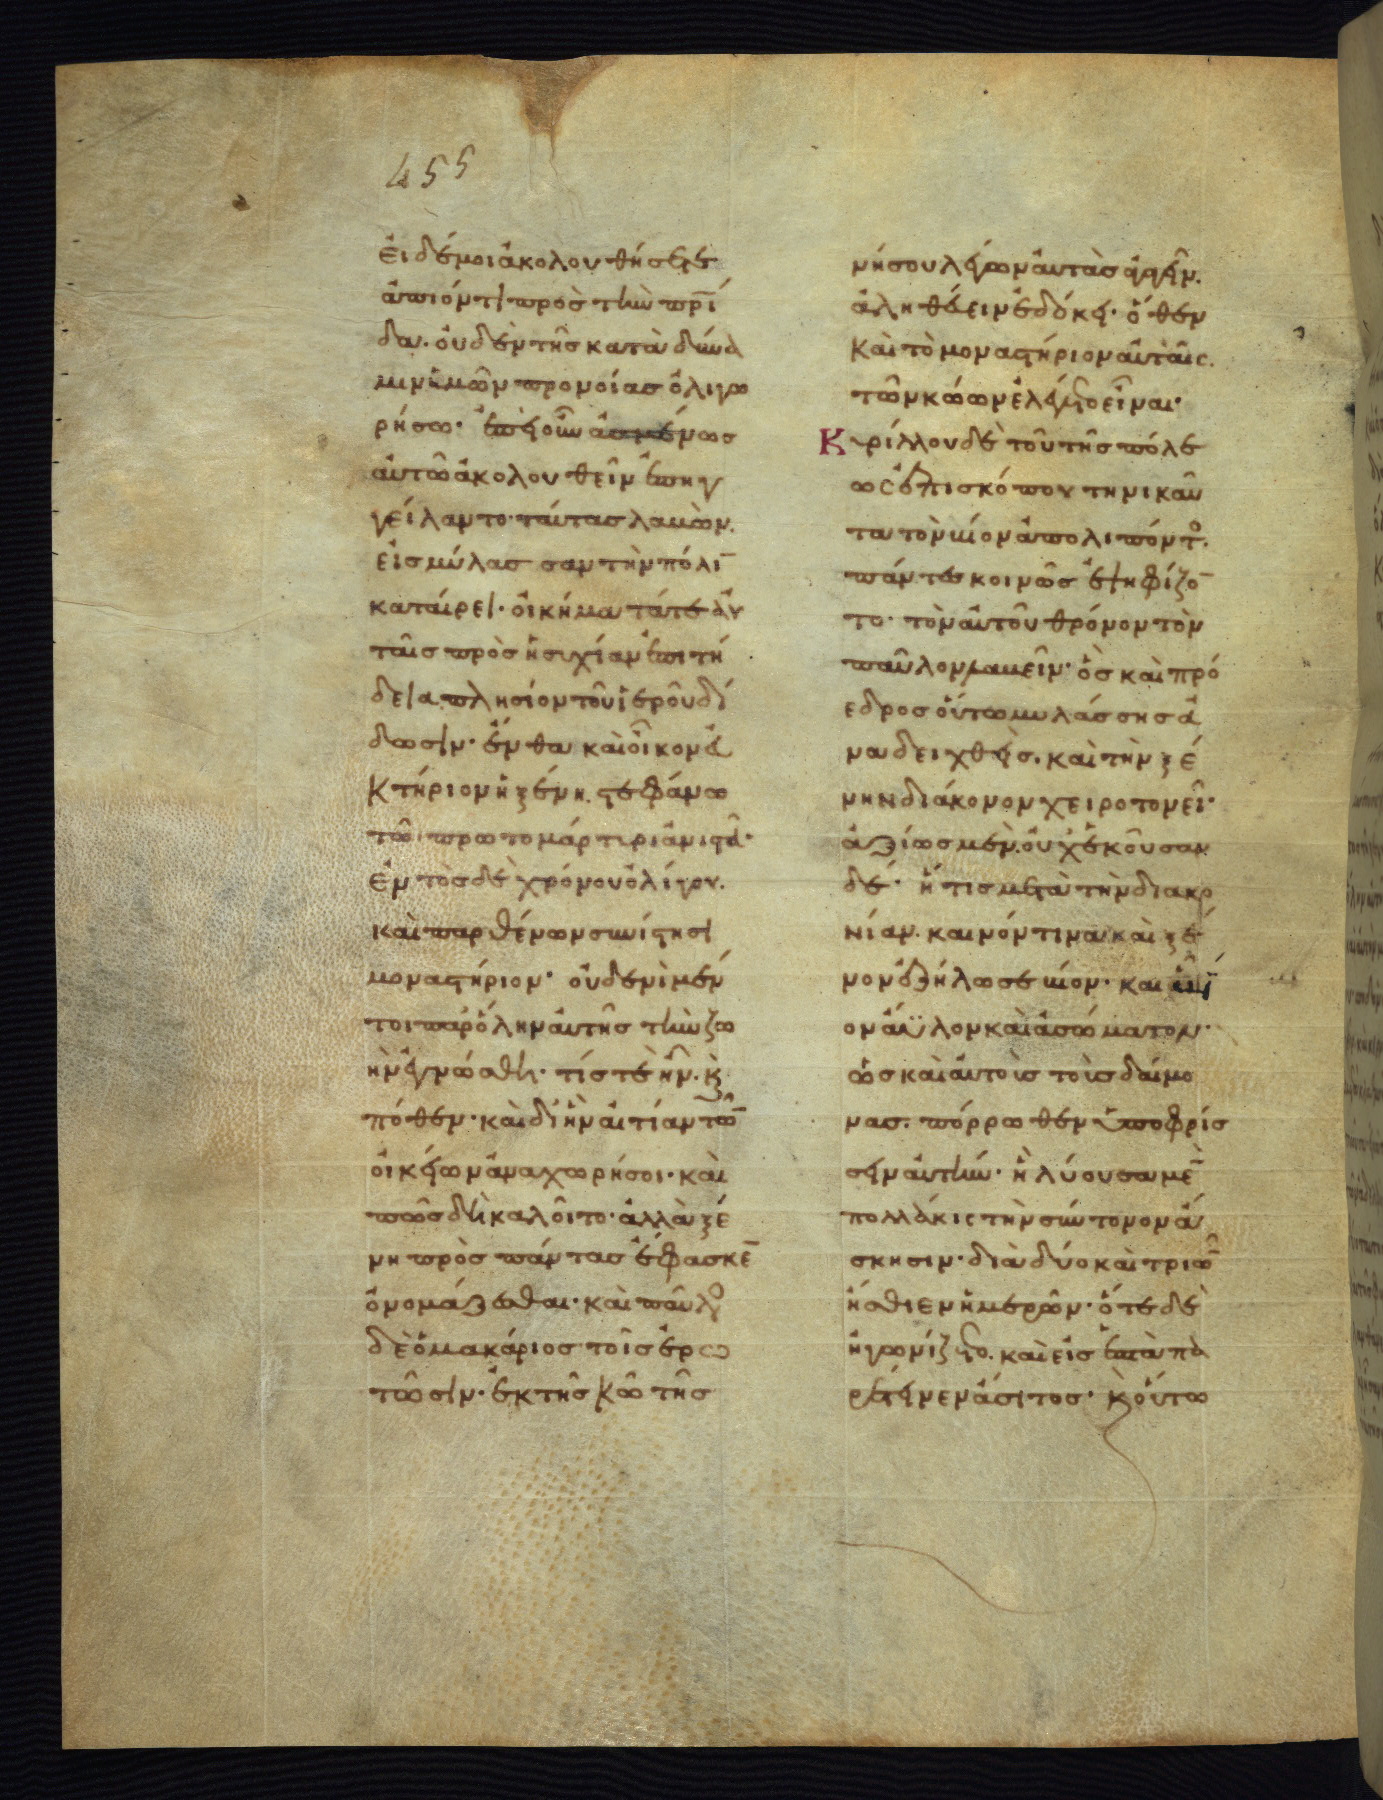 455
εἰ δέ μοι ἀκολουθήσετε
ἀπιόντι πρὸς τὴν πρί
δα· οὐδὲν τῆς κατὰ δύνα
μιν ἡμῶν προνοίας ὀλιγω
ρήσω· ἐπεὶ οὖν ἀσμένως
αὐτῶ ἀκολουθεῖν ἐπηγ
γείλαντο· ταύτας λαβὼν.
εἰς μύλασσαν τὴν πόλι̅
καταίρει· οἰκήματά τε αὐ
ταῖς πρὸς ἡσυχίαν ἐπιτή
δεια πλησίον τοῦ ἱεροῦ δί
δωσιν· ἔνθα καὶ οἶκον εὐ
κτήριον ἡ ξένη. στεφάνω
τῶ πρωτομάρτυρι ἀνιστᾶ·
ἐντὸς δὲ χρόνου ὀλίγου.
καὶ παρθένων συνίστησι
μοναστήριον· οὐδενὶ μέν
τοι παρ' ὅλην αὐτῆς τὴν ζω
ὴν ἐγνώσθη· τίς τὲ ἦν. κ̀
πόθεν· καὶ δι' ἣν αἰτίαν τῶ̅
οἰκείων ἀναχωρήσοι· καὶ
πῶς δὴ καλοῖτο· ἀλλὰ ξέ
νη πρὸς πάντας ἔφασκε̅
ὀνομάζεσθαι· καὶ παῦλο
δὲ ὁ μακάριος τοῖς ἐρω
τῶσιν· ἐκ τῆς κῶ τῆς
νήσου λέγων αὐτὰς ἄγειν.
ἀληθεύειν ἐδόκει· ὅθεν
καὶ τὸ μοναστήριον αὐταῖς.
τῶν κώων ἐλέγετο εἶναι·
Κυρίλλου δὲ τοῦ τῆς πόλε
ως ἐπισκόπου τηνικαῦ
τα τὸν βίον ἀπολιπόντο.
πάντες κοινῶς ἐψηφίζο̅
το· τὸν αὐτοῦ θρόνον τὸν
παῦλον λαβεῖν· ὃς καὶ πρό
εδρος οὕτω μυλάσσης ἀ
ναδειχθεὶς. καὶ τὴν ξέ
νην διάκονον χειροτονεῖ·
ἀξίως μὲν. οὐχ ἑκοῦσαν
δέ· ἥτις μετὰ τὴν διακο
νίαν. καινόν τινα καὶ ξέ
νον ἐζήλωσε βίον· καὶ
ον ἄϋλον καὶ ἀσώματον·
ὡς καὶ αὐτοὶς τοὶς δαίμο
νας. πόρρωθεν ὑποφρίσ
σειν αὐτὴν· ἠ λύουσα μὲ̅
πολλάκις τὴν σύντονον ἄ
σκησιν· διὰ δύο καὶ τριῶ̅
ἤσθιεν ἡμερῶν· ὅτε δὲ
ἠγωνίζετο. καὶ εἰς ἑπτὰ πα
ρέτεινεν ἄσιτος· κ̀ οὕτω